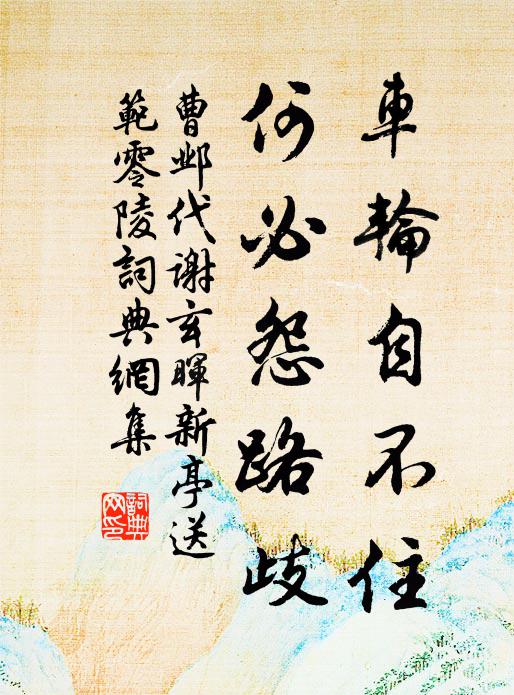 車輪自不住
何必怨路歧
曹邺代謝玄暉新亭送
範零陵詞典網集
詞典
网印